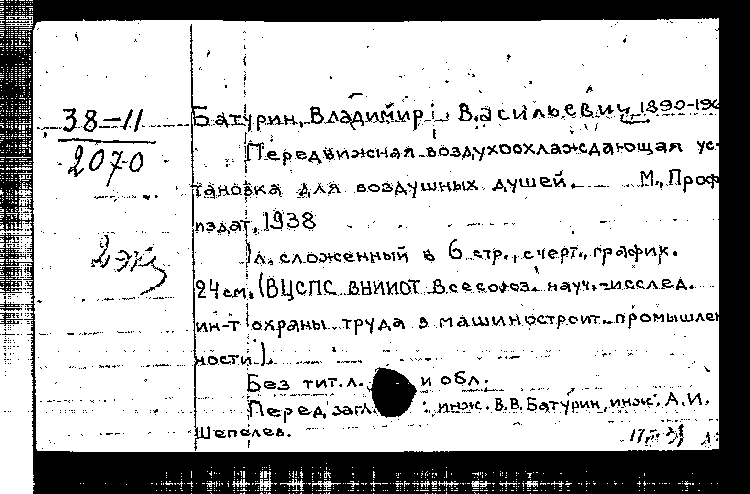 38-11
2070
2 экз
Батурин, Владимир Васильевич, 1890-196
Передвижная воздухоохлаждающая ус-
тановка для воздушных душей. М., Проф
издат, 1938
1 л. сложенный в 6 стр., с черт., график.
24 см. (ВЦСПС ВНИИОТ Всесоюз. науч.-исслед.
ин-т охраны труда в машиностроит. промышлен
ности).
Без тит. л. и обл.
Перед загл : инж. В.В. Батурин, инж. А.И.
Шепелев.